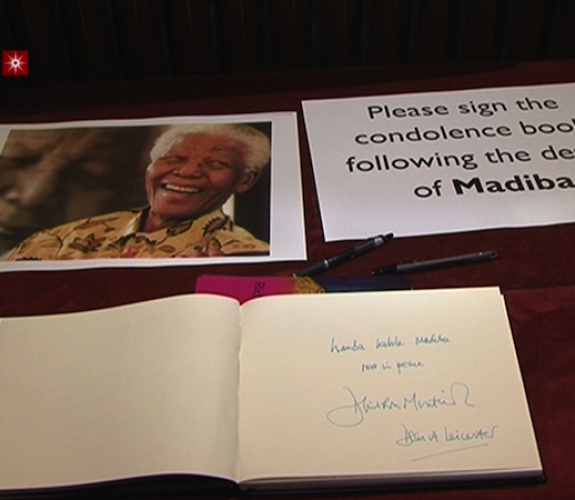 Please sign the
condolence boo
following the de
of Madiba
Hamba kahle Madiba
rest in peace
Leicester